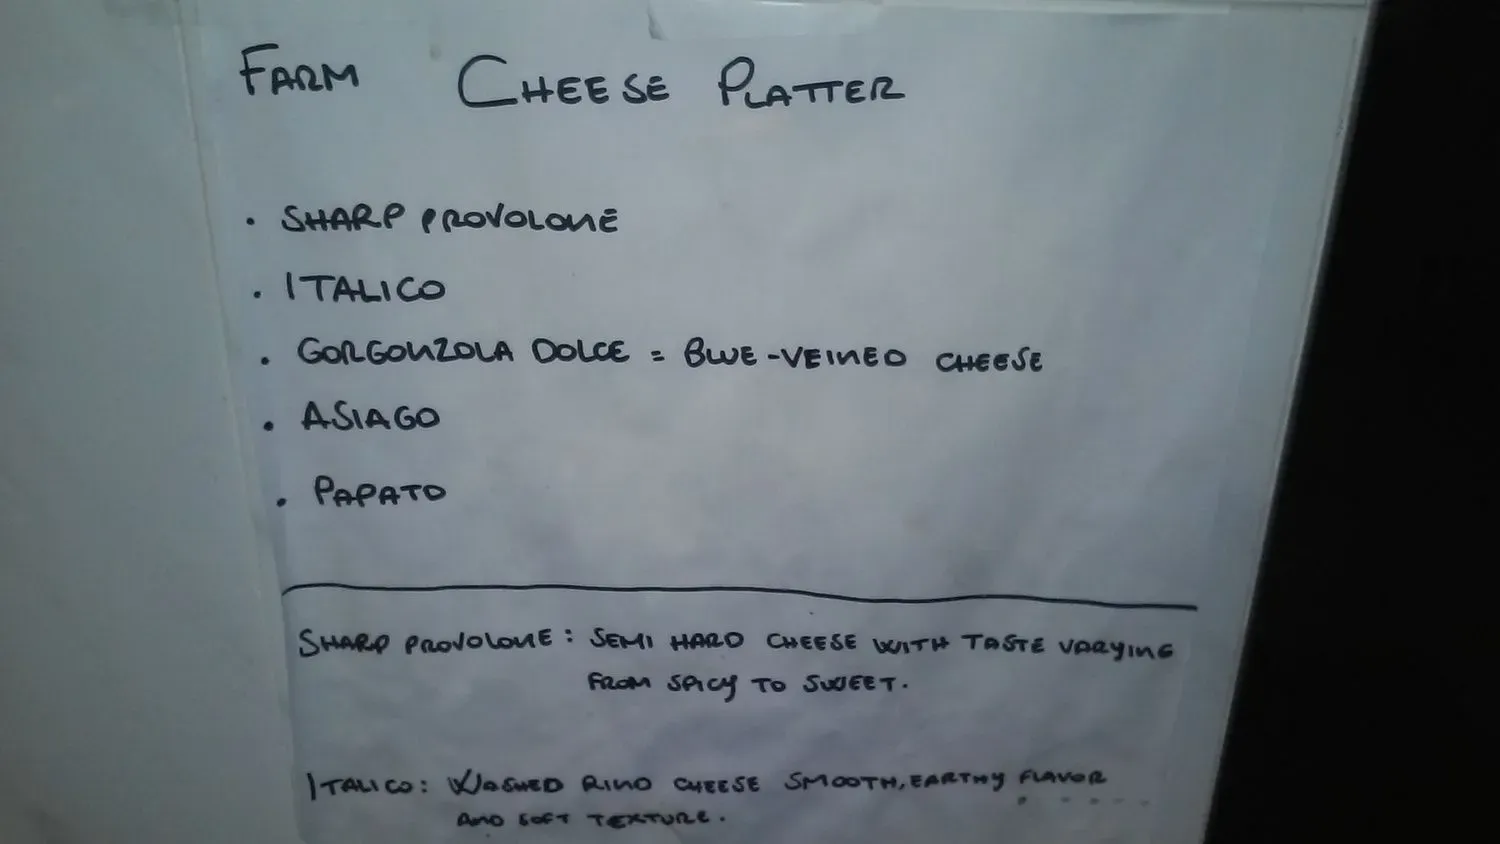 FARM CHEESE PLATTER
. SHARP PROVOLONE
. ITALICO
. GORGONZOLA DOLCE = BLUE-VEINED CHEESE
. ASIAGO
. PAPATO
SHARP PROVOLONE: SEMI HARD CHEESE WITH TASTE VARYING
FROM SPICY TO SWEET.
ITALICO: WASHED RIND CHEESE SMOOTH, EARTHY FLAVOR
AND SOFT TEXTURE.